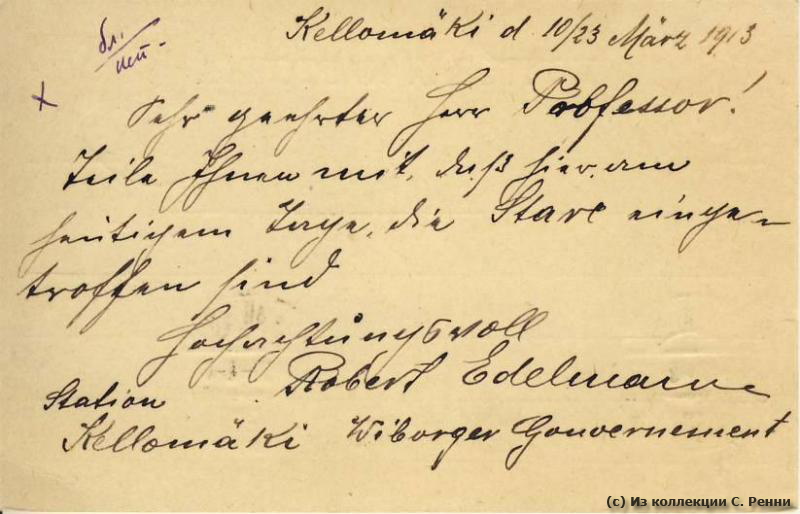 Kellomäki d 10/23 März 1913
бл.
пет-
x
Sehr geehrter Herr Probfessor!
Teile Ihnen mit, daß hier am
heutigem Tage, die Stare einge-
troffen sind
Hochachtungsvoll
Robert Edelmann
Station
Kellomäki Wiborger Gouvernement
(c) Из коллекции С. Ренни